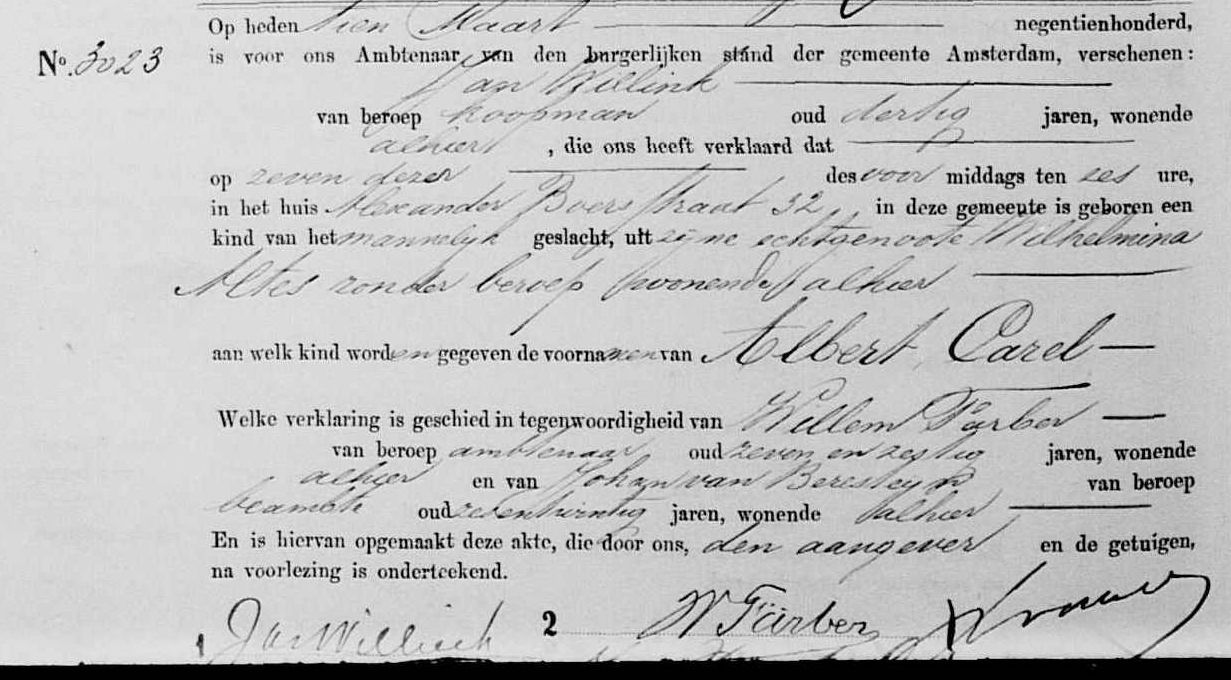 Op heden tien Maart negentienhonderd,
No. 3023 is voor ons Ambtenaar van den burgerlijken stand der gemeente Amsterdam, verschenen:
Jan Willink
van beroep koopman oud dertig jaren, wonende
alhier, die ons heeft verklaard dat
op zeven dezer des voor middags ten zes ure,
in het huis Alexander Boersstraat 32 in deze gemeente is geboren een
kind van het mannelijk geslacht, uit zijne echtgenoote Wilhelmina
Altes zonder beroep wonende alhier
aan welk kind worden gegeven de voornamen van Albert Carel
Welke verklaring is geschied in tegenwoordigheid van Willem Färber
van beroep ambtenaar oud zeven en zestig jaren, wonende
alhier en van Johan van Beresteyn van beroep
beambte oud jaren, wonende alhier
En is hiervan opgemaakt deze akte, die door ons, den aangever en de getuigen,
na voorlezing is onderteekend.
Jan Willink 2 W Färber